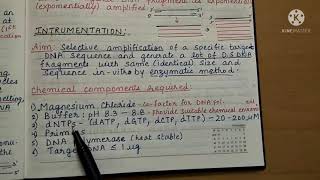 exponentially)
exponentially amplified)
INTRUMENTATION:
Aim: Selective amplification of a specific target
DNA sequence and generate a lot of D.S.DNA
fragments with same (identical) size and
sequence in-vitro by enzymatic method.
Chemical components required:
1) Magnesium Chloride - co-factor for DNA Pol.
2) Buffer: pH 8.3 - 8.8 - Provide suitable chemical
3) dNTPs - (dATP, dGTP, dCTP, dTTP) - 20-200μM
4) Primers
5) DNA Polymerase (heat stable)
6) Target DNA ≤ 1μg
KINEMASTER